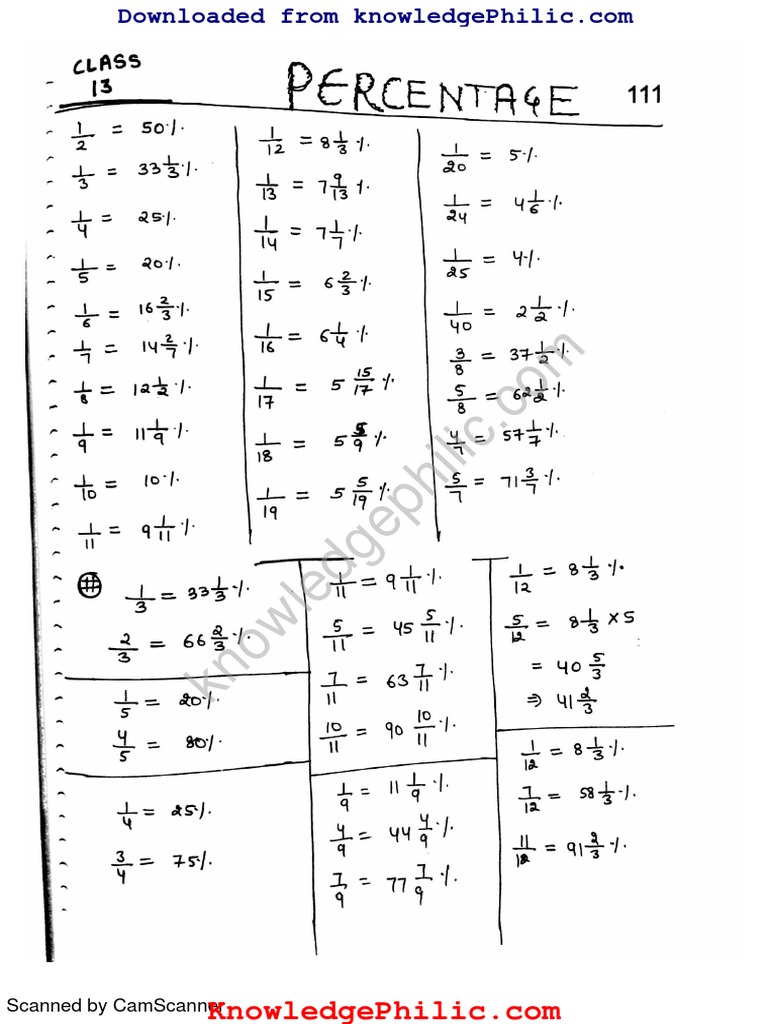 Downloaded from knowledgePhilic.com
CLASS
13
PERCENTAGE
111
1/2 = 50%
1/3 = 33 1/3 %
1/4 = 25%
1/5 = 20%
1/6 = 16 2/3 %
1/7 = 14 2/7 %
1/8 = 12 1/2 %
1/9 = 11 1/9 %
1/10 = 10%
1/11 = 9 1/11 %
1/12 = 8 1/3 %
1/13 = 7 9/13 %
1/14 = 7 1/7 %
1/15 = 6 2/3 %
1/16 = 6 1/4 %
1/17 = 5 15/17 %
1/18 = 5 5/9 %
1/19 = 5 5/19 %
1/20 = 5%
1/24 = 4 1/6 %
1/25 = 4%
1/40 = 2 1/2 %
3/8 = 37 1/2 %
5/8 = 62 1/2 %
4/7 = 57 1/7 %
5/7 = 71 3/7 %
1/3 = 33 1/3 %
2/3 = 66 2/3 %
1/5 = 20%
4/5 = 80%
1/4 = 25%
3/4 = 75%
1/11 = 9 1/11 %
5/11 = 45 5/11 %
7/11 = 63 7/11 %
10/11 = 90 10/11 %
1/9 = 11 1/9 %
4/9 = 44 4/9 %
7/9 = 77 7/9 %
1/12 = 8 1/3 %
5/12 = 8 1/3 × 5
= 40 5/3
⇒ 41 2/3
1/12 = 8 1/3 %
7/12 = 58 1/3 %
11/12 = 91 2/3 %
knowledgephilic.com
Scanned by CamScanner
KnowledgePhilic.com